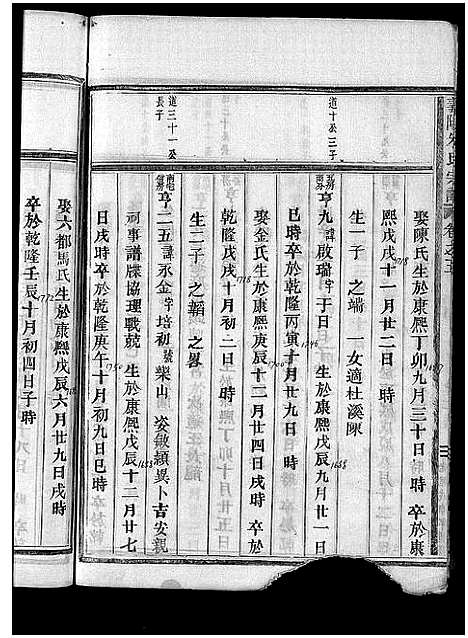 娶陳氏生於康熙丁卯九月三十日時 卒於康
熙戊戌十一月廿二日 時
生一子 之端 一女適杜溪陳
道十公三子
亨九 諱啟瑞字于日 生於康熙戊辰九月廿一日
巳時 卒於乾隆丙寅十月廿九日 時
娶金氏生於康熙庚辰十二月廿四日戌時 卒於
乾隆戊戌十月初二日 時
生二子 之韜 之畧
道三十一公
長子
亨二五 諱永金字培初號樂山 姿敏頴異卜吉安親
祠事譜牒協理戰兢 生於康熙戊辰十二月廿七
日戌時卒於乾隆庚午十月初九日巳時
娶六都馬氏生於康熙戊辰六月廿九日戌時
卒於乾隆壬辰十月初四日子時
1718
1688
1746
1700
1688
1750
1772